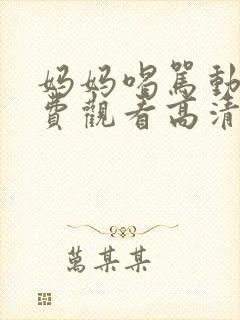 妈妈喝駡動
費觀看高清
萬某某